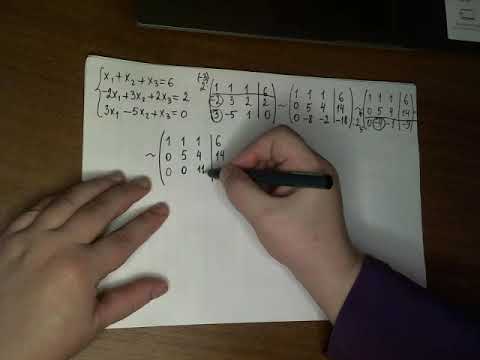 x₁ + x₂ + x₃ = 6
-2x₁ + 3x₂ + 2x₃ = 2
3x₁ - 5x₂ + x₃ = 0
(-3) 2
1 1 1 | 6
-2 3 2 | 2
3 -5 1 | 0
~
1 1 1 | 6
0 5 4 | 14
0 -8 -2 | -18
~
1 1 1 | 6
0 5 4 | 14
0 -4 -1 | -9
~
1 1 1 | 6
0 5 4 | 14
0 0 11